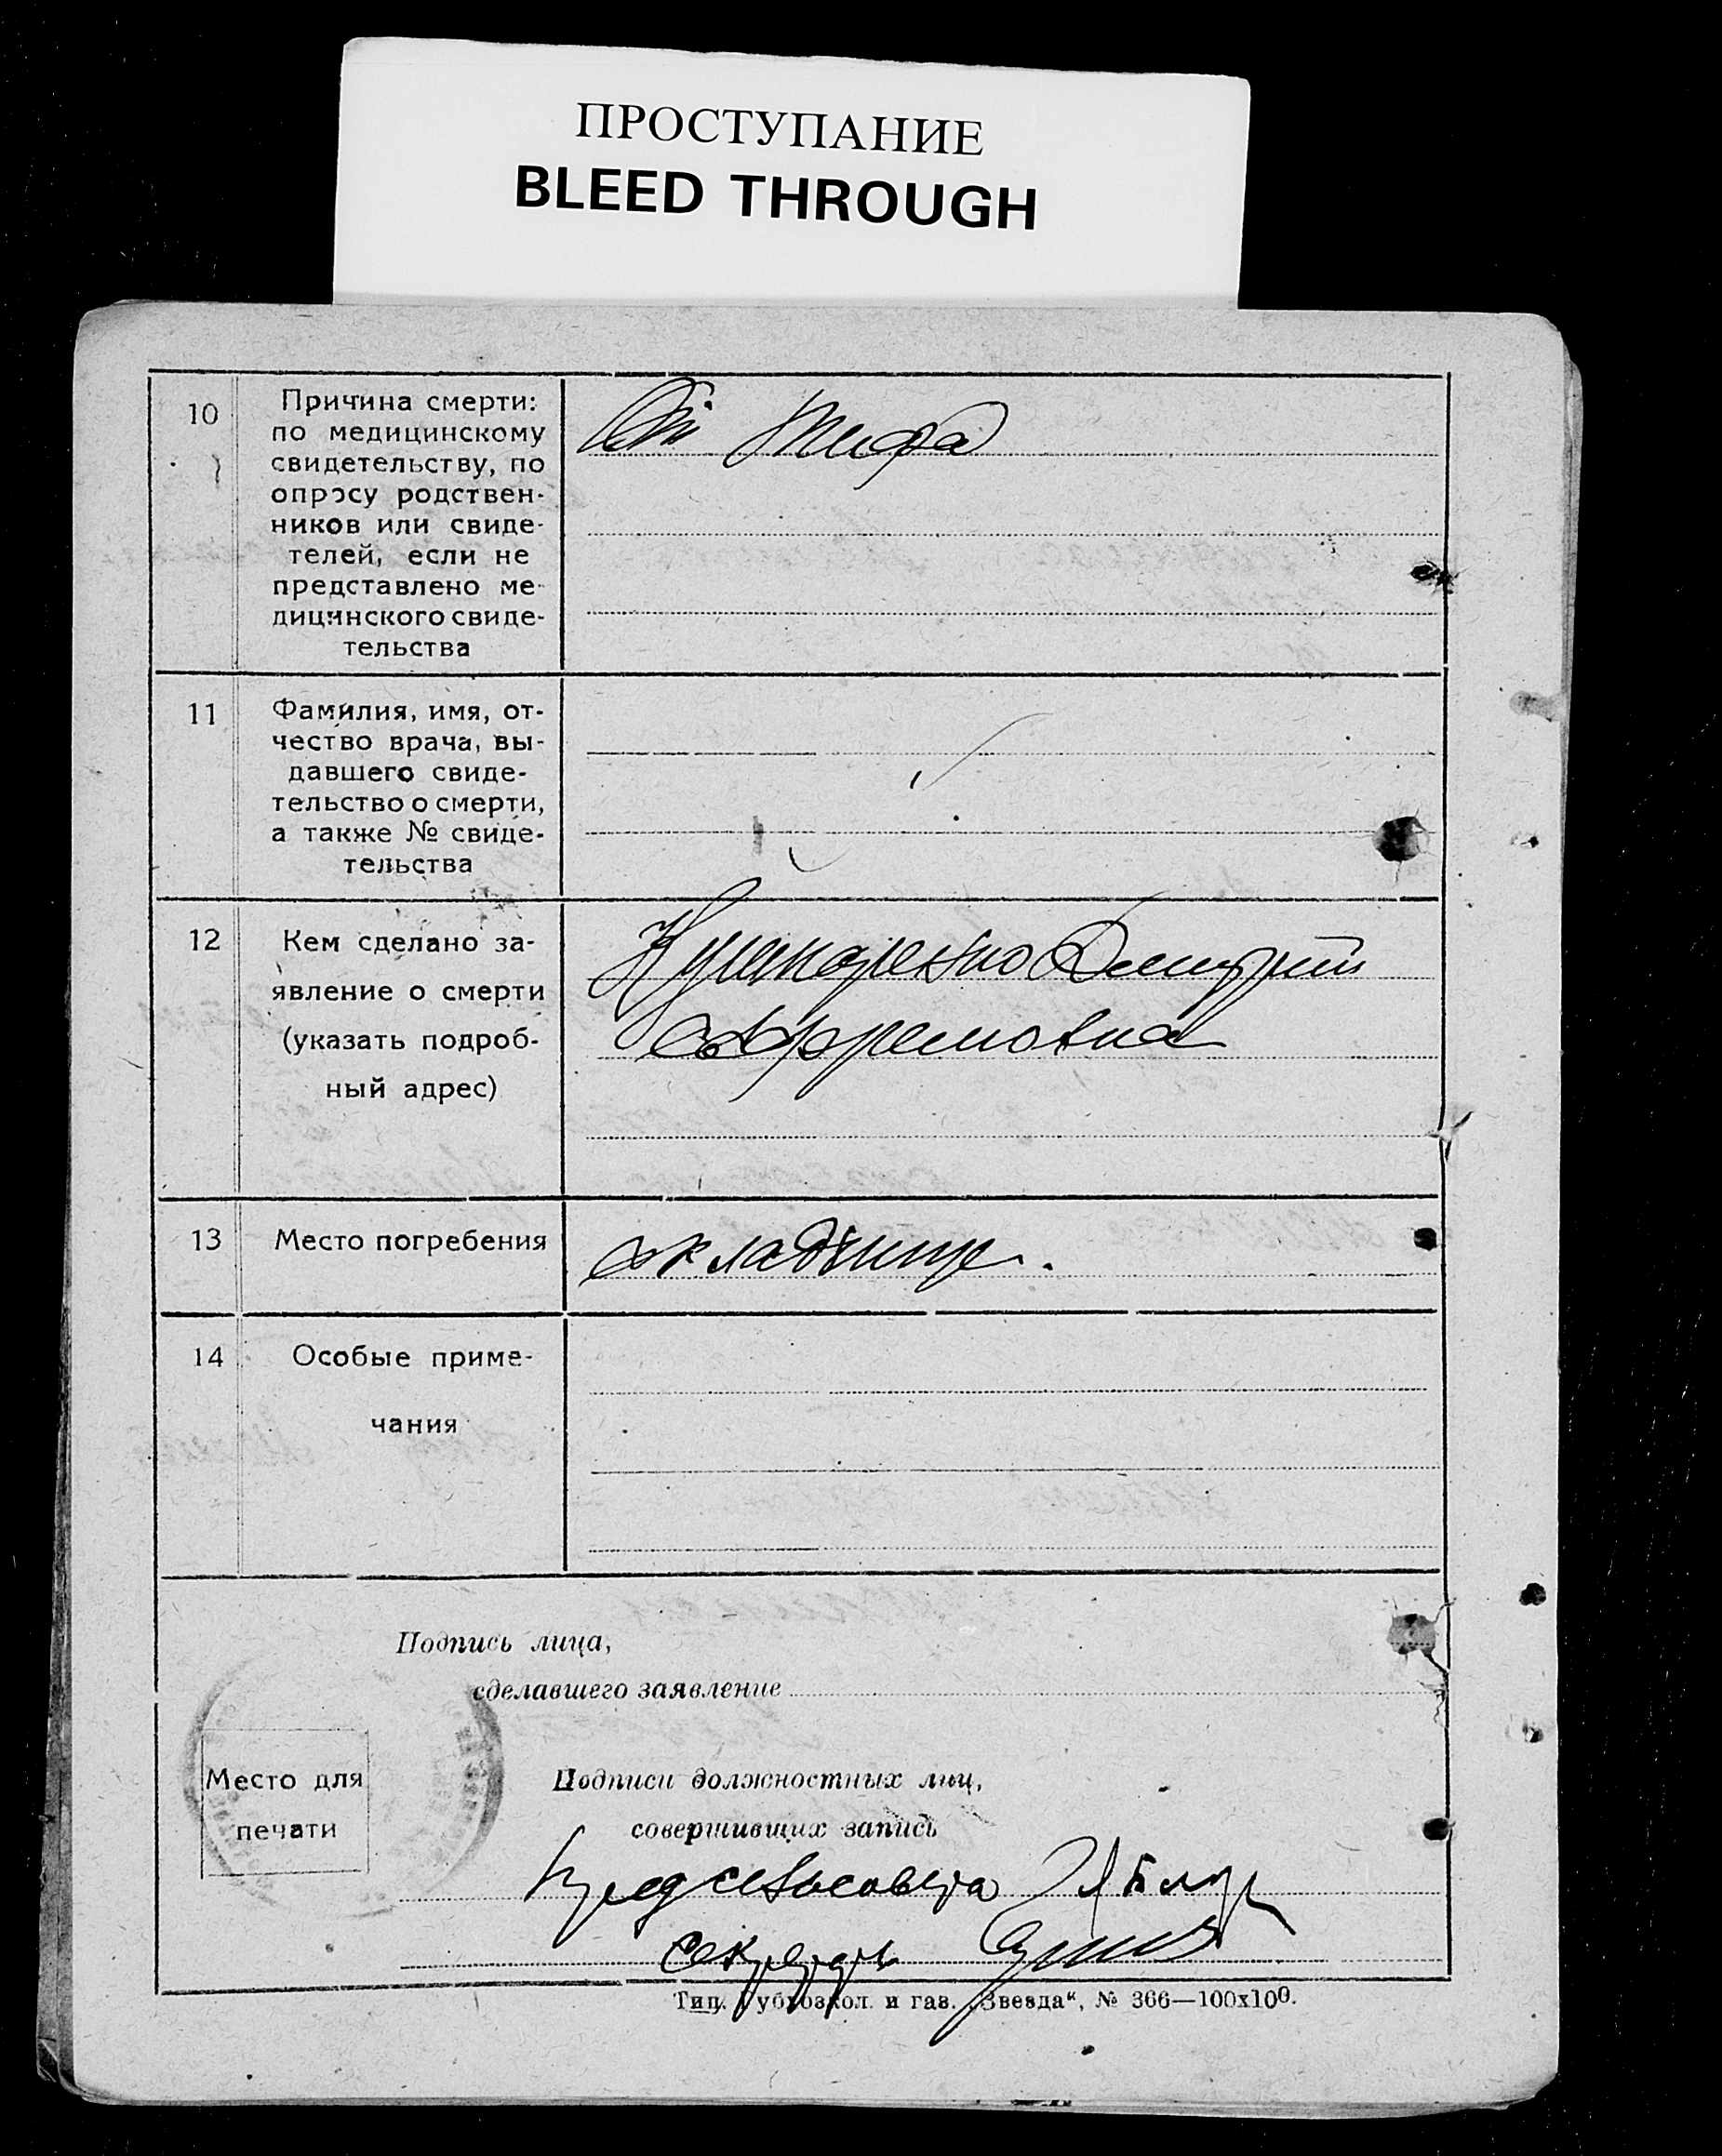 ПРОСТУПАНИЕ
BLEED THROUGH
10
Причина смерти:
по медицинскому
свидетельству, по
опросу родствен-
ников или свиде-
телей, если не
представлено ме-
дицинского свиде-
тельства
От тифа
11
Фамилия, имя, от-
чество врача, вы-
давшего свиде-
тельство о смерти,
а также № свиде-
тельства
12
Кем сделано за-
явление о смерти
(указать подроб-
ный адрес)
Дмитрий
13
Место погребения
кладбище.
14
Особые приме-
чания
Подпись лица,
сделавшего заявление
Место для
печати
Подписи должностных лиц,
совершивших запись
Пред сельсовета
секретарь
Тип. Губрозкол. и газ. „Звезда“, № 366—100х100.